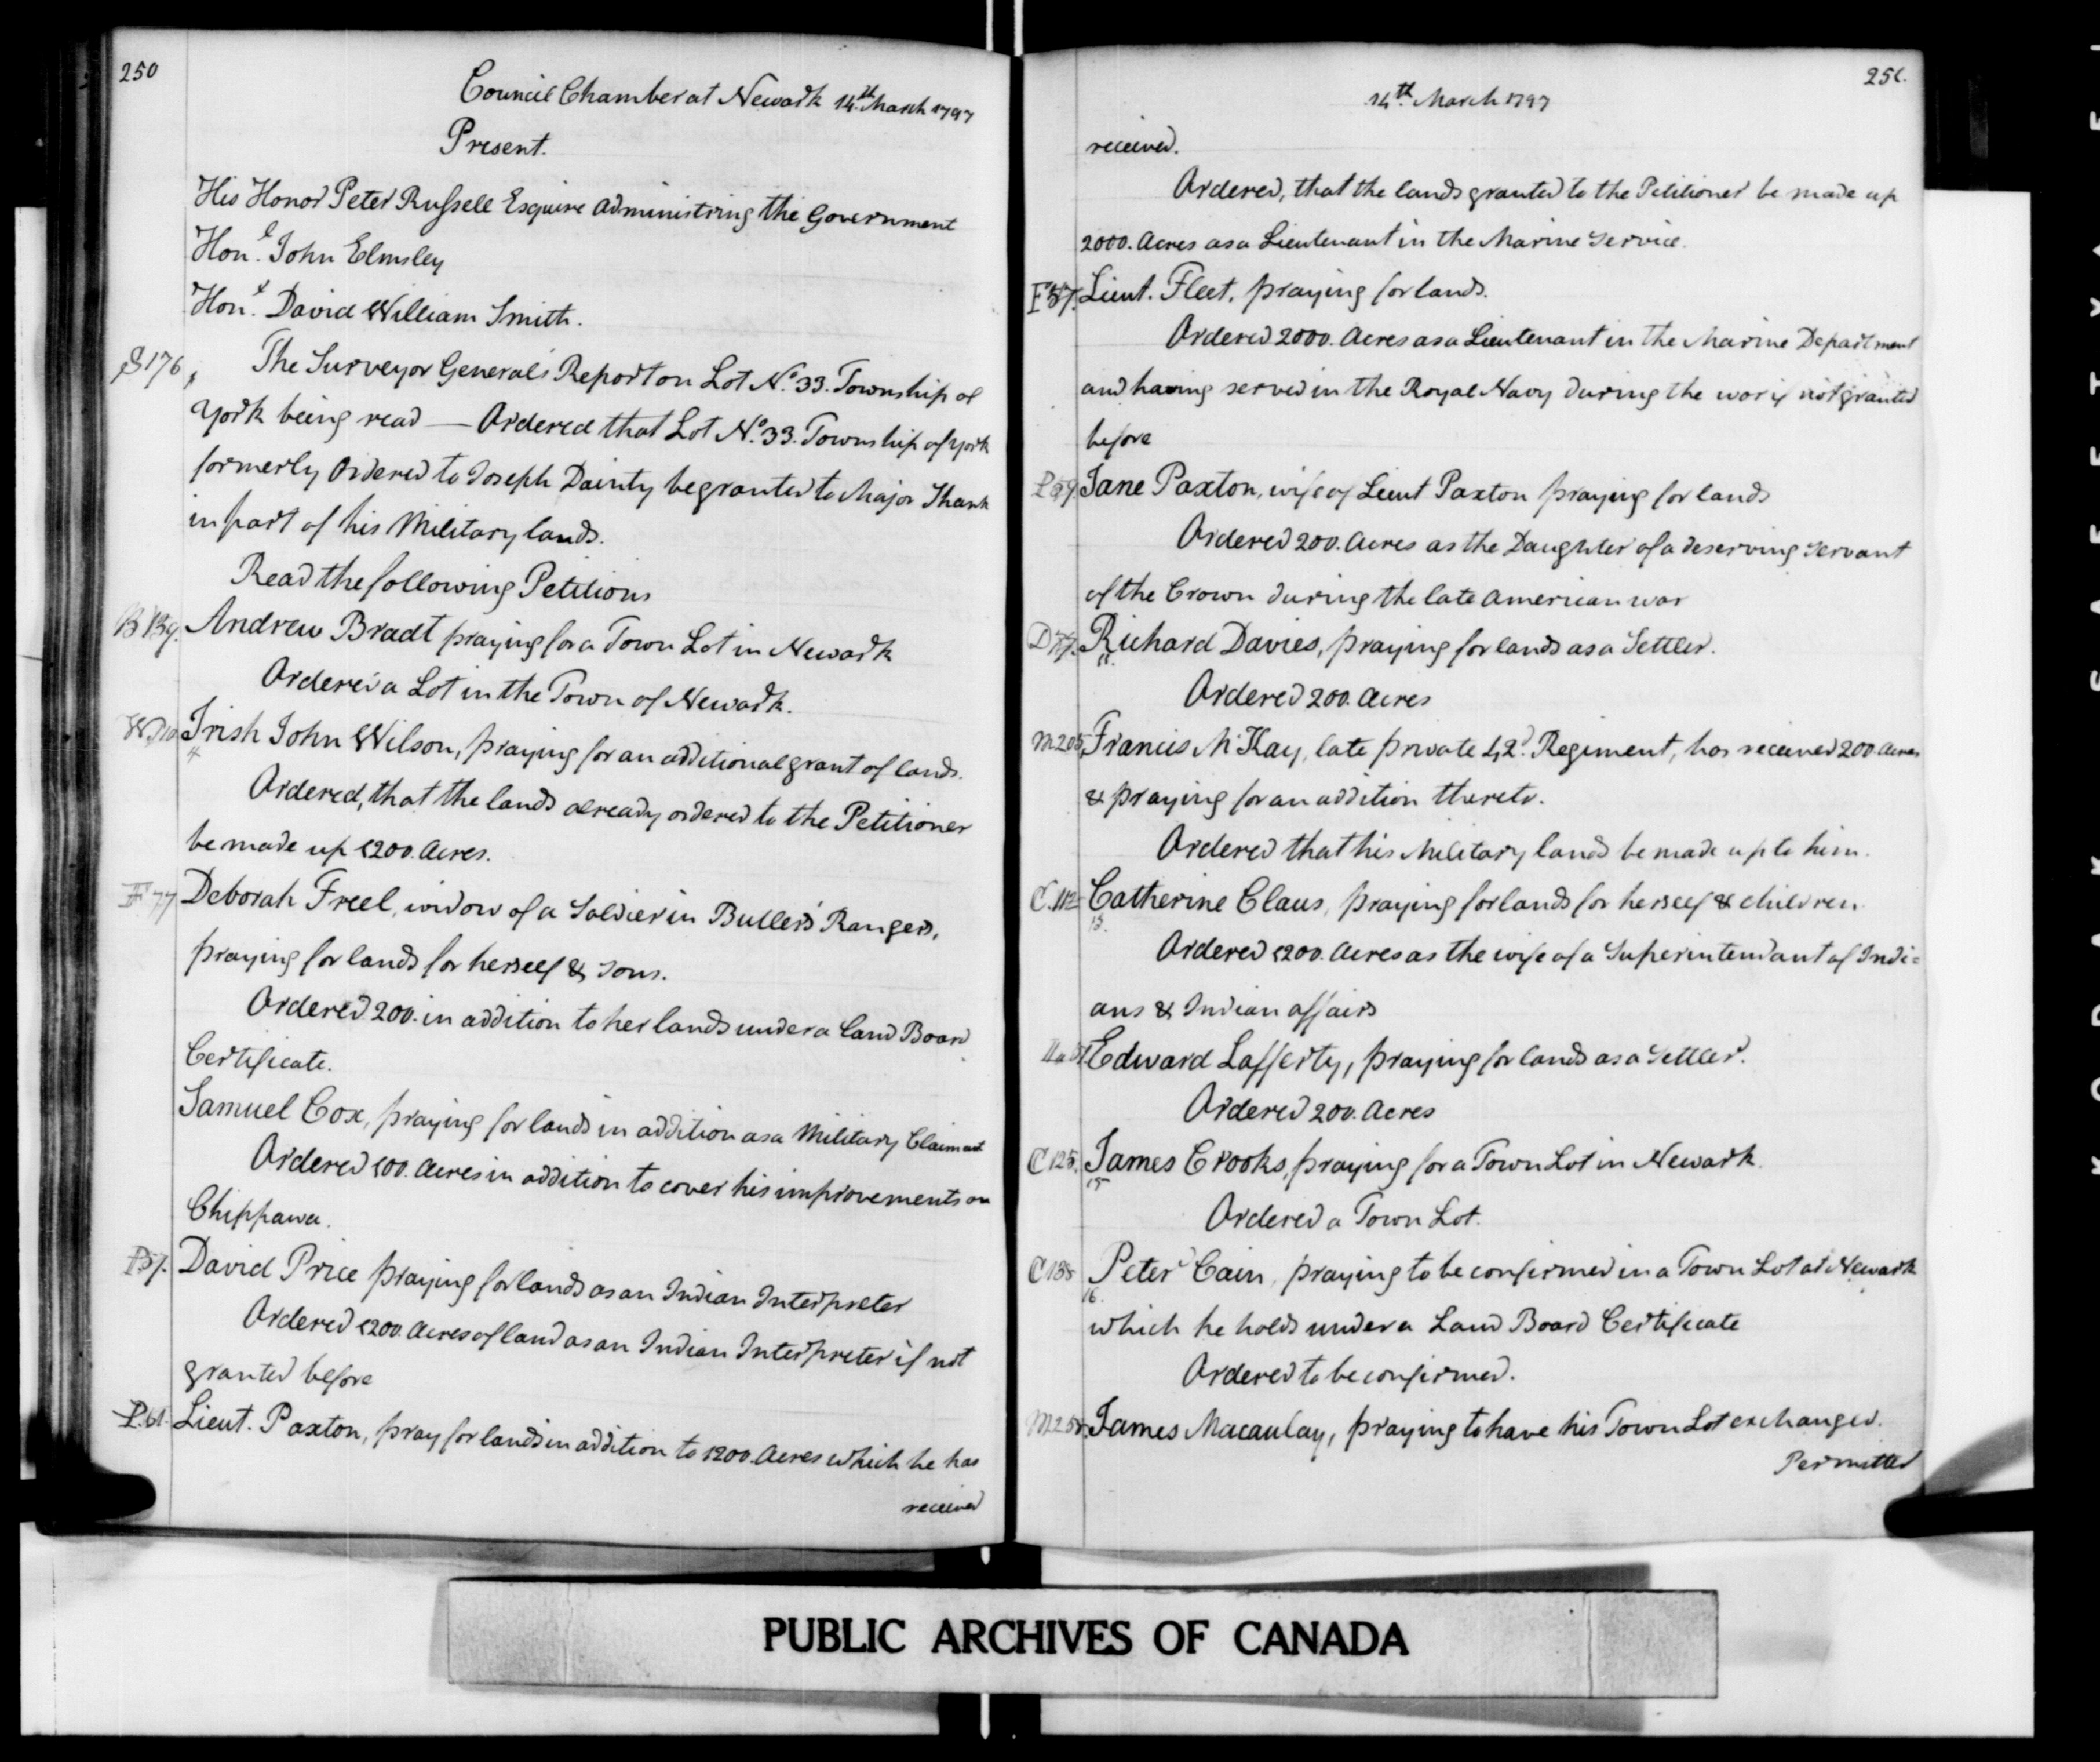 250
Council Chamber at Newark 14th March 1797
Present.
His Honor Peter Russell Esquire administring the Government
Honl. John Elmsley
Honl. David William Smith.
S 176, The Surveyor Generals Report on Lot No. 33. Township of
York being read — Ordered that Lot No. 33. Township of York
formerly Ordered to Joseph Dainty be granted to Major Shank
in part of his Military lands.
Read the following Petitions
B 139. Andrew Bradt praying for a Town Lot in Newark
Ordered a Lot in the Town of Newark.
Irish John Wilson, praying for an additional grant of lands.
Ordered, that the lands already ordered to the Petitioner
be made up 1200. Acres.
F 77 Deborah Freel, widow of a Soldier in Butler's Rangers,
praying for lands for herself & sons.
Ordered 200. in addition to her lands under a Land Board
Certificate.
Samuel Cox, praying for lands in addition as a Military Claimant
Ordered 100. Acres in addition to cover his improvements on
Chippawa.
P 57. David Price praying for lands as an Indian Interpreter
Ordered 1200. Acres of land as an Indian Interpreter if not
granted before
P. 61. Lieut. Paxton, pray for lands in addition to 1200. Acres which he has
received
251.
14th March 1797
received.
Ordered, that the lands granted to the Petitioner be made up
2000. Acres as a Lieutenant in the Marine Service.
Lieut. Fleet, praying for lands.
Ordered 2000. Acres as a Lieutenant in the Marine Department
and having served in the Royal Navy during the war if not granted
before
Jane Paxton, wife of Lieut Paxton praying for lands
Ordered 200. Acres as the Daughter of a deserving servant
of the Crown during the late American war
Richard Davies, praying for lands as a Settler.
11.
Ordered 200. Acres
M 205, Francis McKay, late private 42d. Regiment, has received 200 Acres
& praying for an addition thereto.
Ordered that his Military lands be made up to him.
C. 112 Catherine Claus, praying for lands for herself & children
13.
Ordered 1200. Acres as the wife of a Superintendant of Indi=
ans & Indian affairs
Edward Lafferty, praying for lands as a Settler.
Ordered 200. Acres
C 125. James Crooks, praying for a Town Lot in Newark.
15
Ordered a Town Lot.
C 138 Peter Cain, praying to be confirmed in a Town Lot at Newark
16.
which he holds under a Land Board Certificate
Ordered to be confirmed.
James Macaulay, praying to have his Town Lot exchanged.
Permitted
PUBLIC ARCHIVES OF CANADA